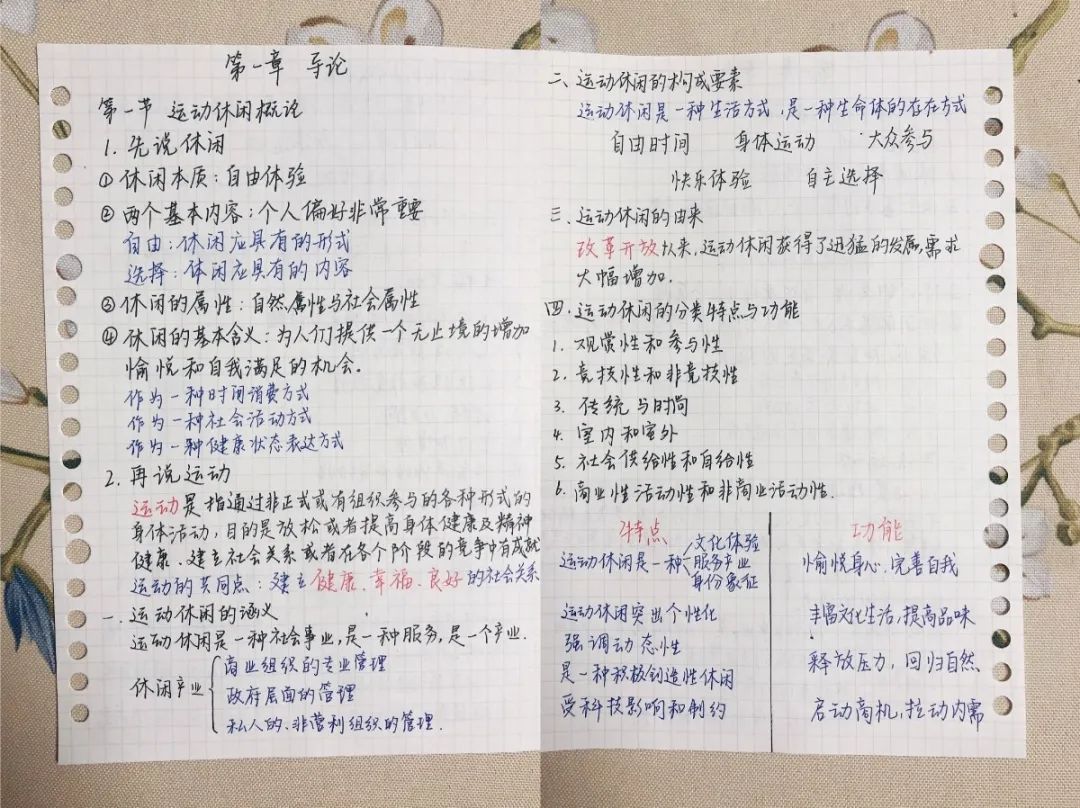 第一章 导论
第一节 运动休闲概论
1. 先说休闲
① 休闲本质：自由体验
② 两个基本内容：个人偏好非常重要
自由：休闲应具有的形式
选择：休闲应具有的内容
③ 休闲的属性：自然属性与社会属性
④ 休闲的基本含义：为人们提供一个无止境的增加
愉悦和自我满足的机会。
作为一种时间消费方式
作为一种社会活动方式
作为一种健康状态表达方式
2. 再说运动
运动是指通过非正式或有组织参与的各种形式的
身体活动，目的是放松或者提高身体健康及精神
健康、建立社会关系或者在各个阶段的竞争中有成就
运动的共同点：建立健康、幸福、良好的社会关系
一、运动休闲的涵义
运动休闲是一种社会事业，是一种服务，是一个产业.
休闲产业
商业组织的专业管理
政府层面的管理
私人的、非营利组织的管理.
二、运动休闲的构成要素
运动休闲是一种生活方式，是一种生命体的存在方式
自由时间 身体运动 大众参与
快乐体验 自主选择
三、运动休闲的由来
改革开放以来，运动休闲获得了迅猛的发展，需求
大幅增加.
四、运动休闲的分类特点与功能
1. 观赏性和参与性
2. 竞技性和非竞技性
3. 传统与时尚
4. 室内和室外
5. 社会供给性和自给性
6. 商业性活动性和非商业活动性.
特点
运动休闲是一种
文化体验
服务产业
身份象征
运动休闲突出个性化
强调动态性
是一种积极创造性休闲
受科技影响和制约
功能
愉悦身心，完善自我
丰富文化生活，提高品味
释放压力，回归自然
启动商机，拉动内需